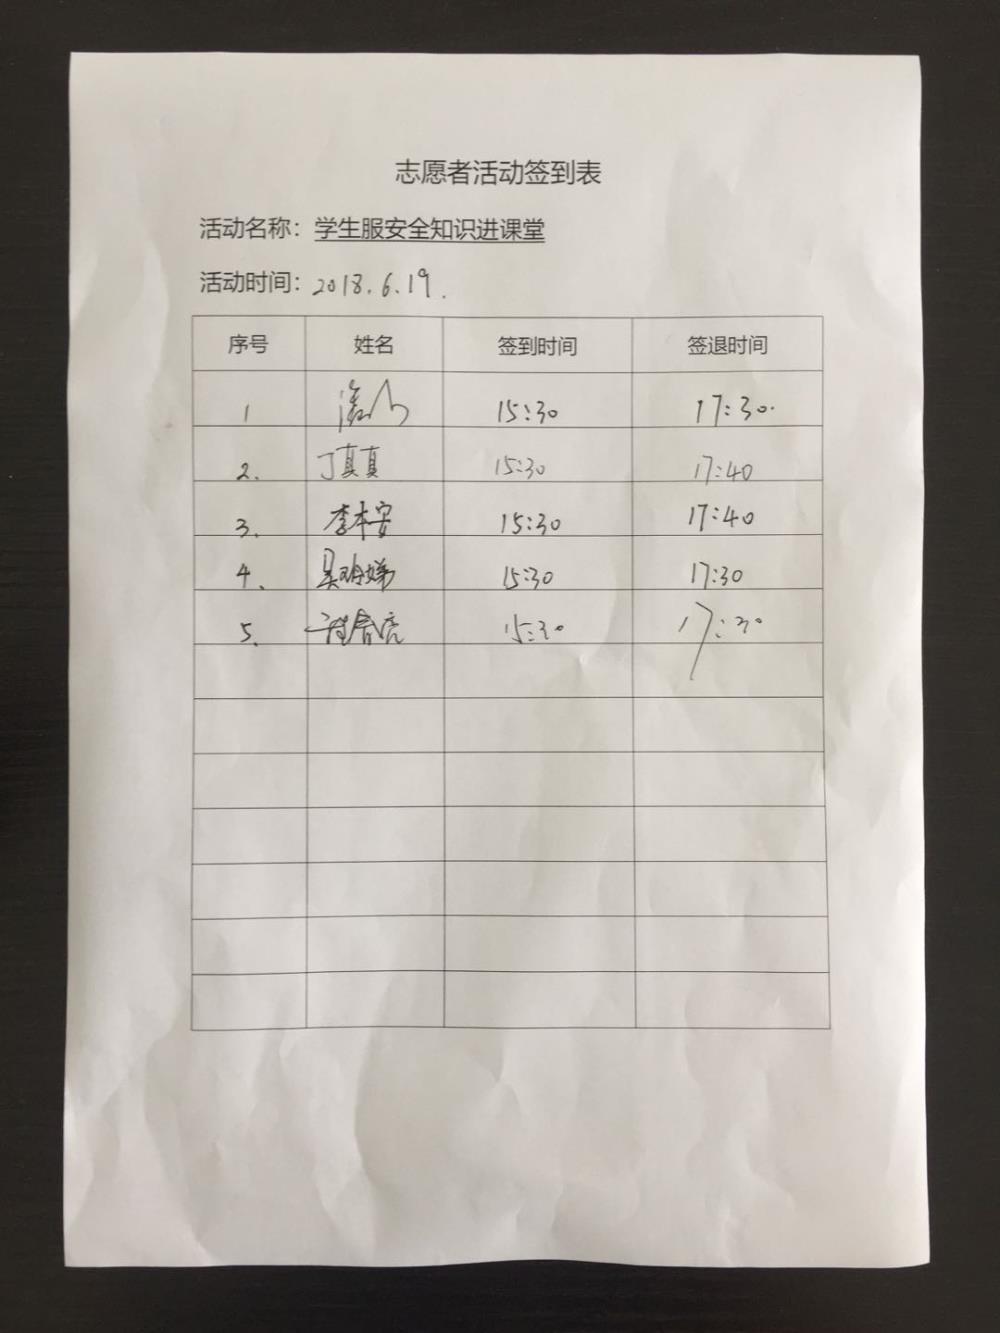 志愿者活动签到表
活动名称：学生服安全知识进课堂
活动时间：2018.6.19.
序号 姓名 签到时间 签退时间
1 15:30 17:30.
2. 丁真真 15:30 17:40
3. 李本安 15:30 17:40
4. 15:30 17:30
5. 15:30 17:30